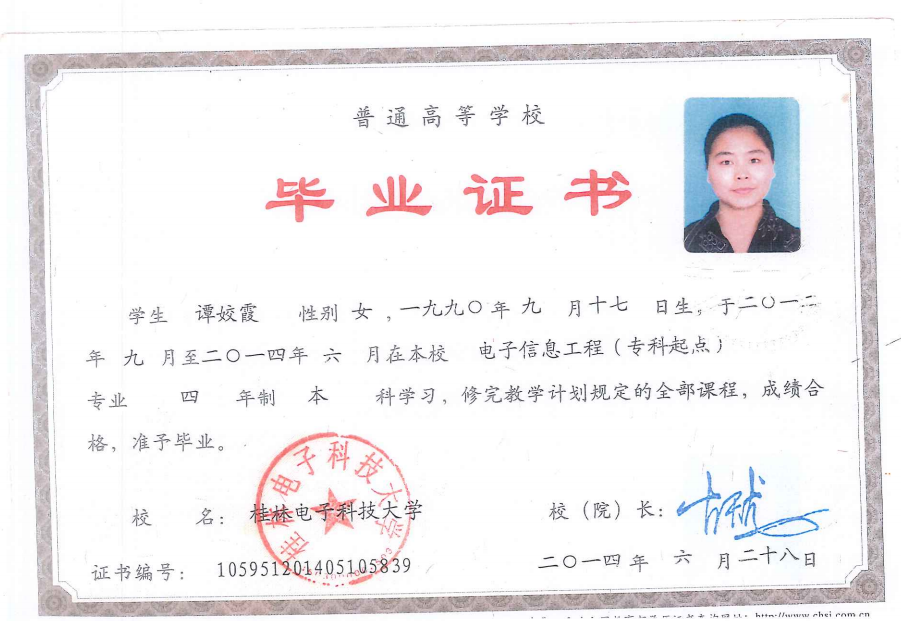 普通高等学校
毕业证书
学生 谭姣霞 性别 女 ,一九九〇年 九 月十七 日生, 于二〇一二
年 九 月至二〇一四年 六 月在本校 电子信息工程(专科起点)
专业 四 年制 本 科学习, 修完教学计划规定的全部课程, 成绩合
格, 准予毕业。
桂林电子科技大学
校 名: 桂林电子科技大学
校(院)长:
证书编号: 105951201405105839
二〇一四年 六 月二十八日
http://www.chsi.com.cn